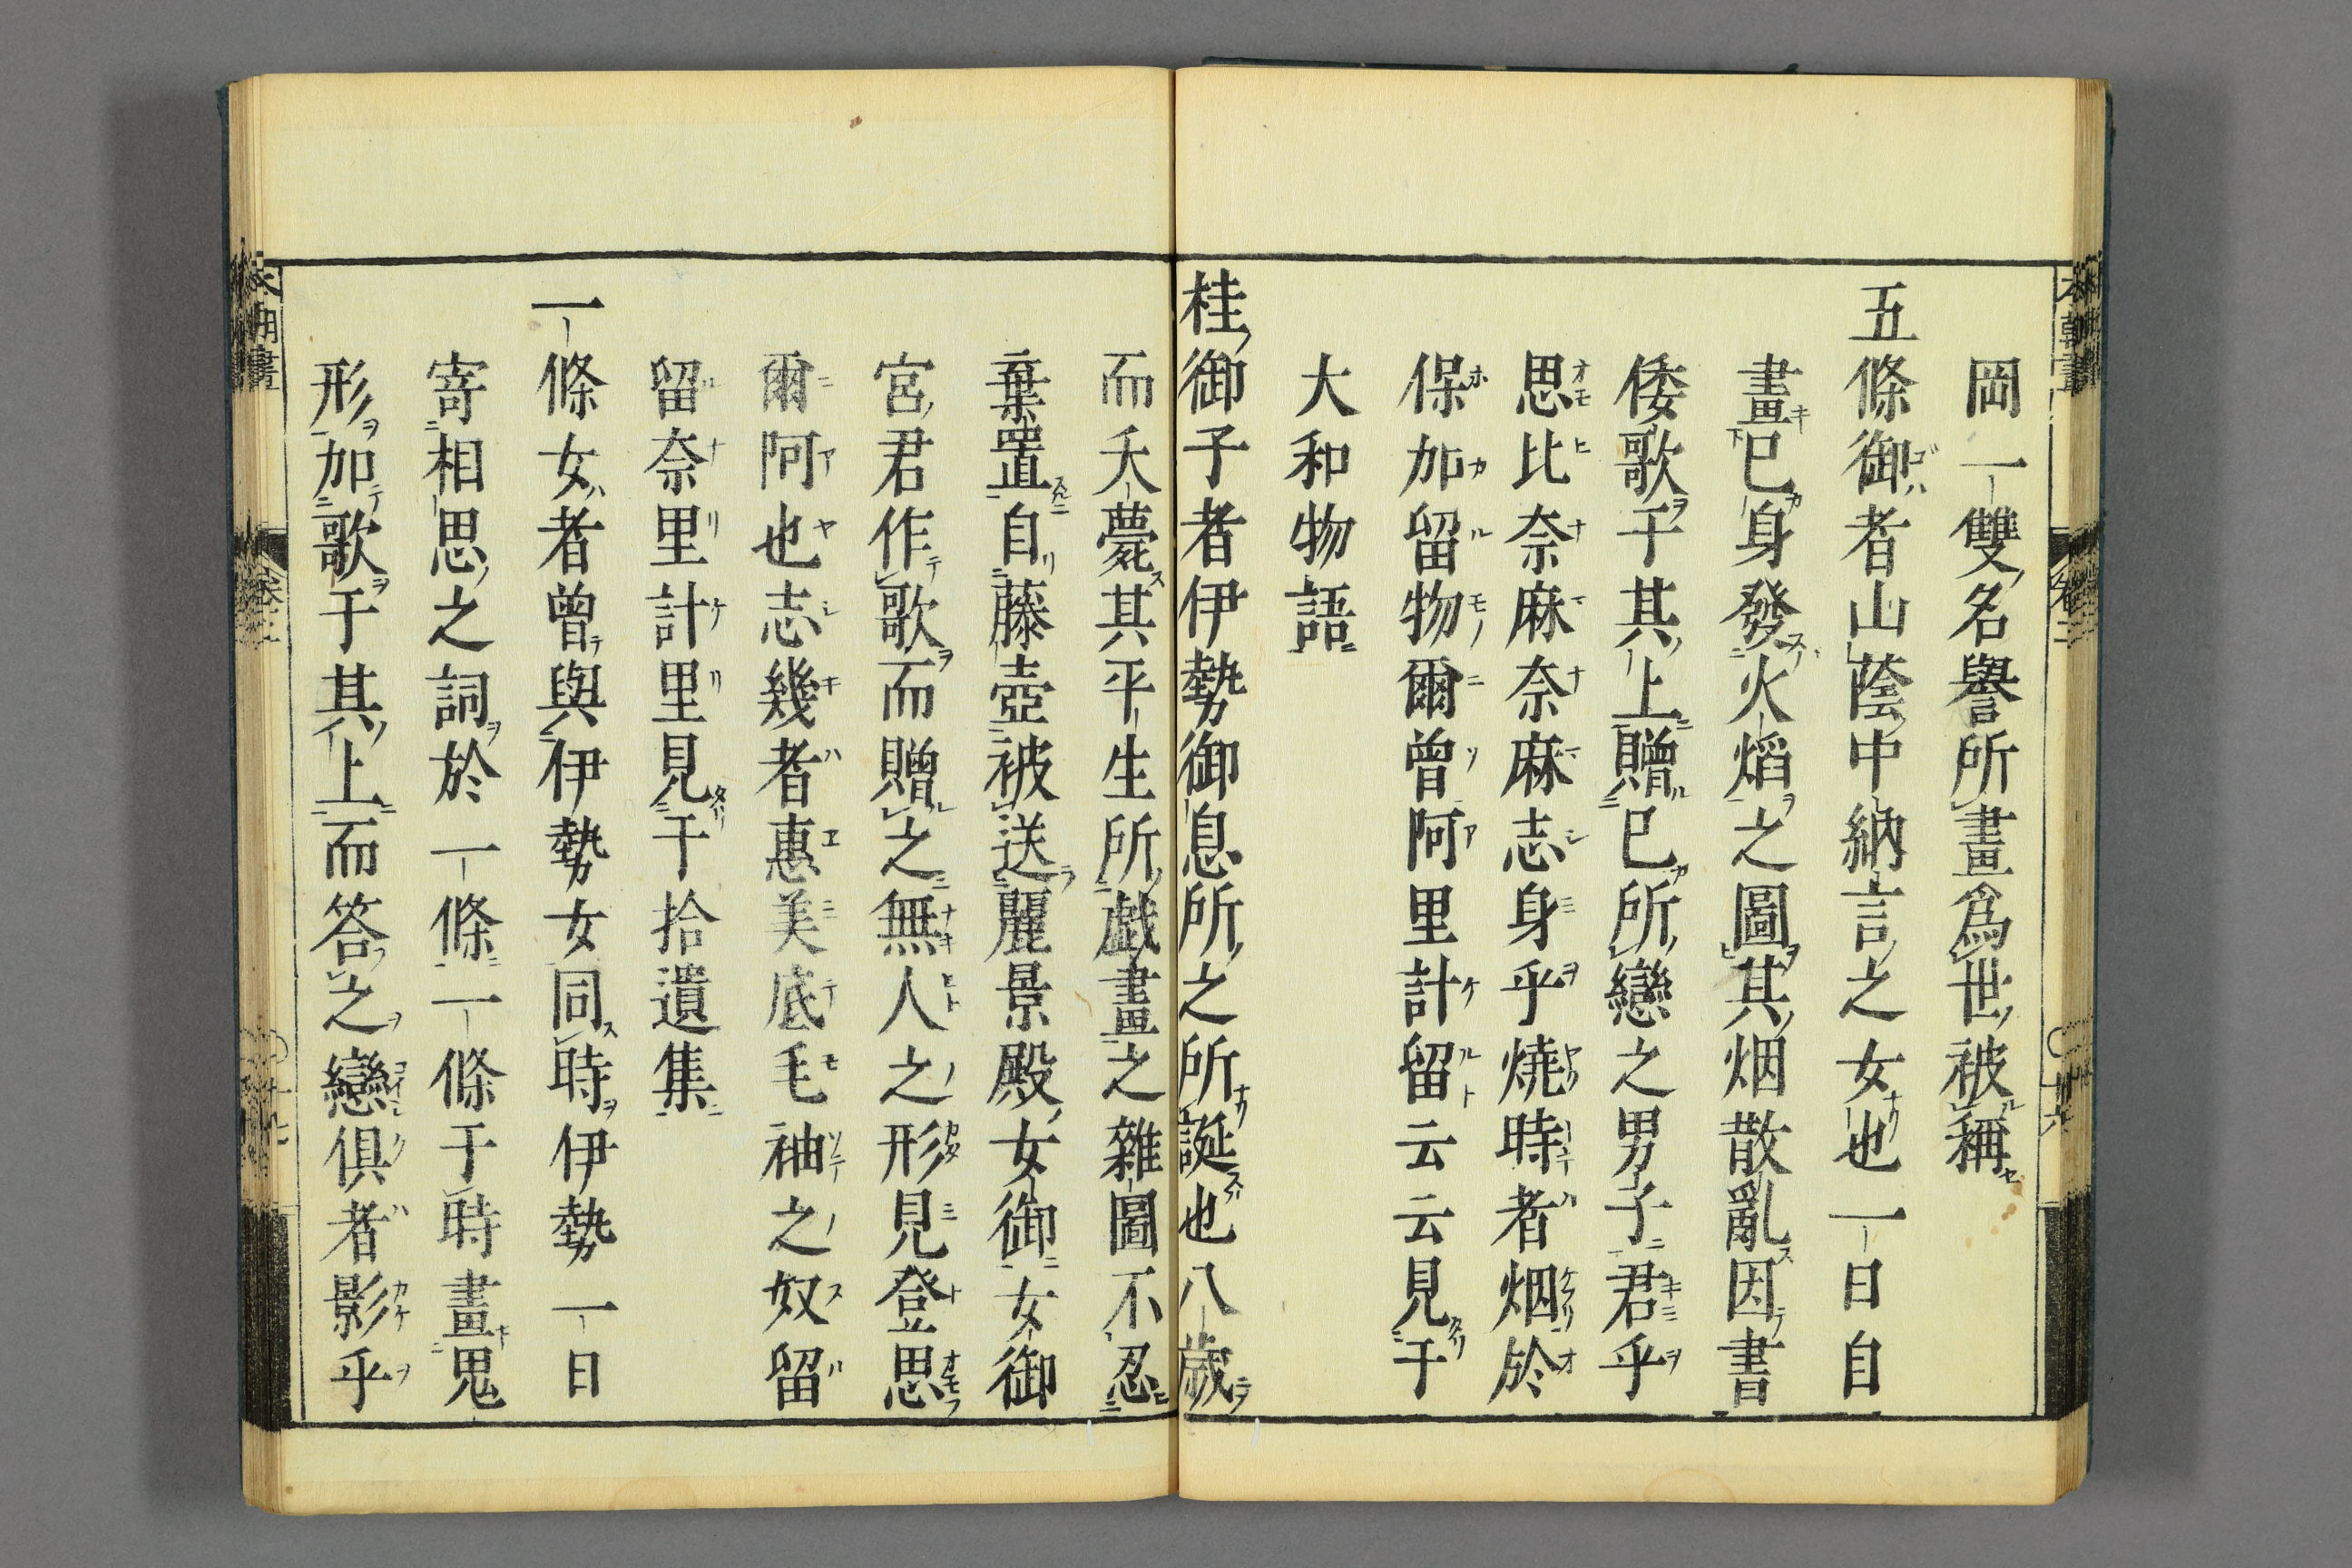 岡一雙名譽所畫爲世被稱
五條御者山蔭中納言之女也一日自
畫已身發火焰之圖其烟散亂因書
倭歌于其上贈已所戀之男子君乎
思比奈麻奈麻志身乎燒時者烟於
保加留物爾曾阿里計留云云見于
大和物語
桂御子者伊勢御息所之所誕也八歲
而夭薨其平生所戯畫之雜圖不忍
棄置自藤壺被送麗景殿女御女御
宮君作歌而贈之無人之形見登思
爾阿也志幾者惠美底毛袖之奴留
留奈里計里見于拾遺集
一條女者曾與伊勢女同時伊勢一日
寄相思之詞於一條一條于時畫鬼
形加歌于其上而答之戀俱者影乎